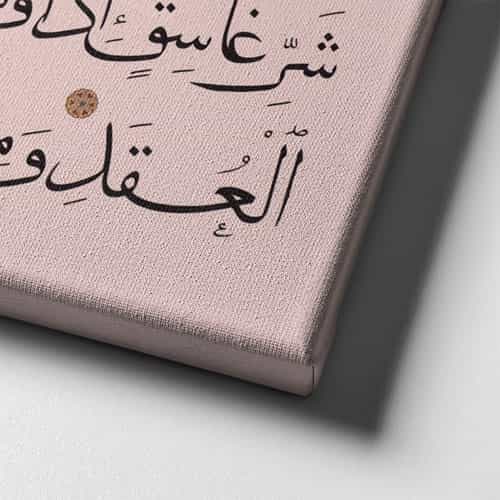 شَرِّ غَاسِقٍ إِذَا
الْعُقَدِ وَ